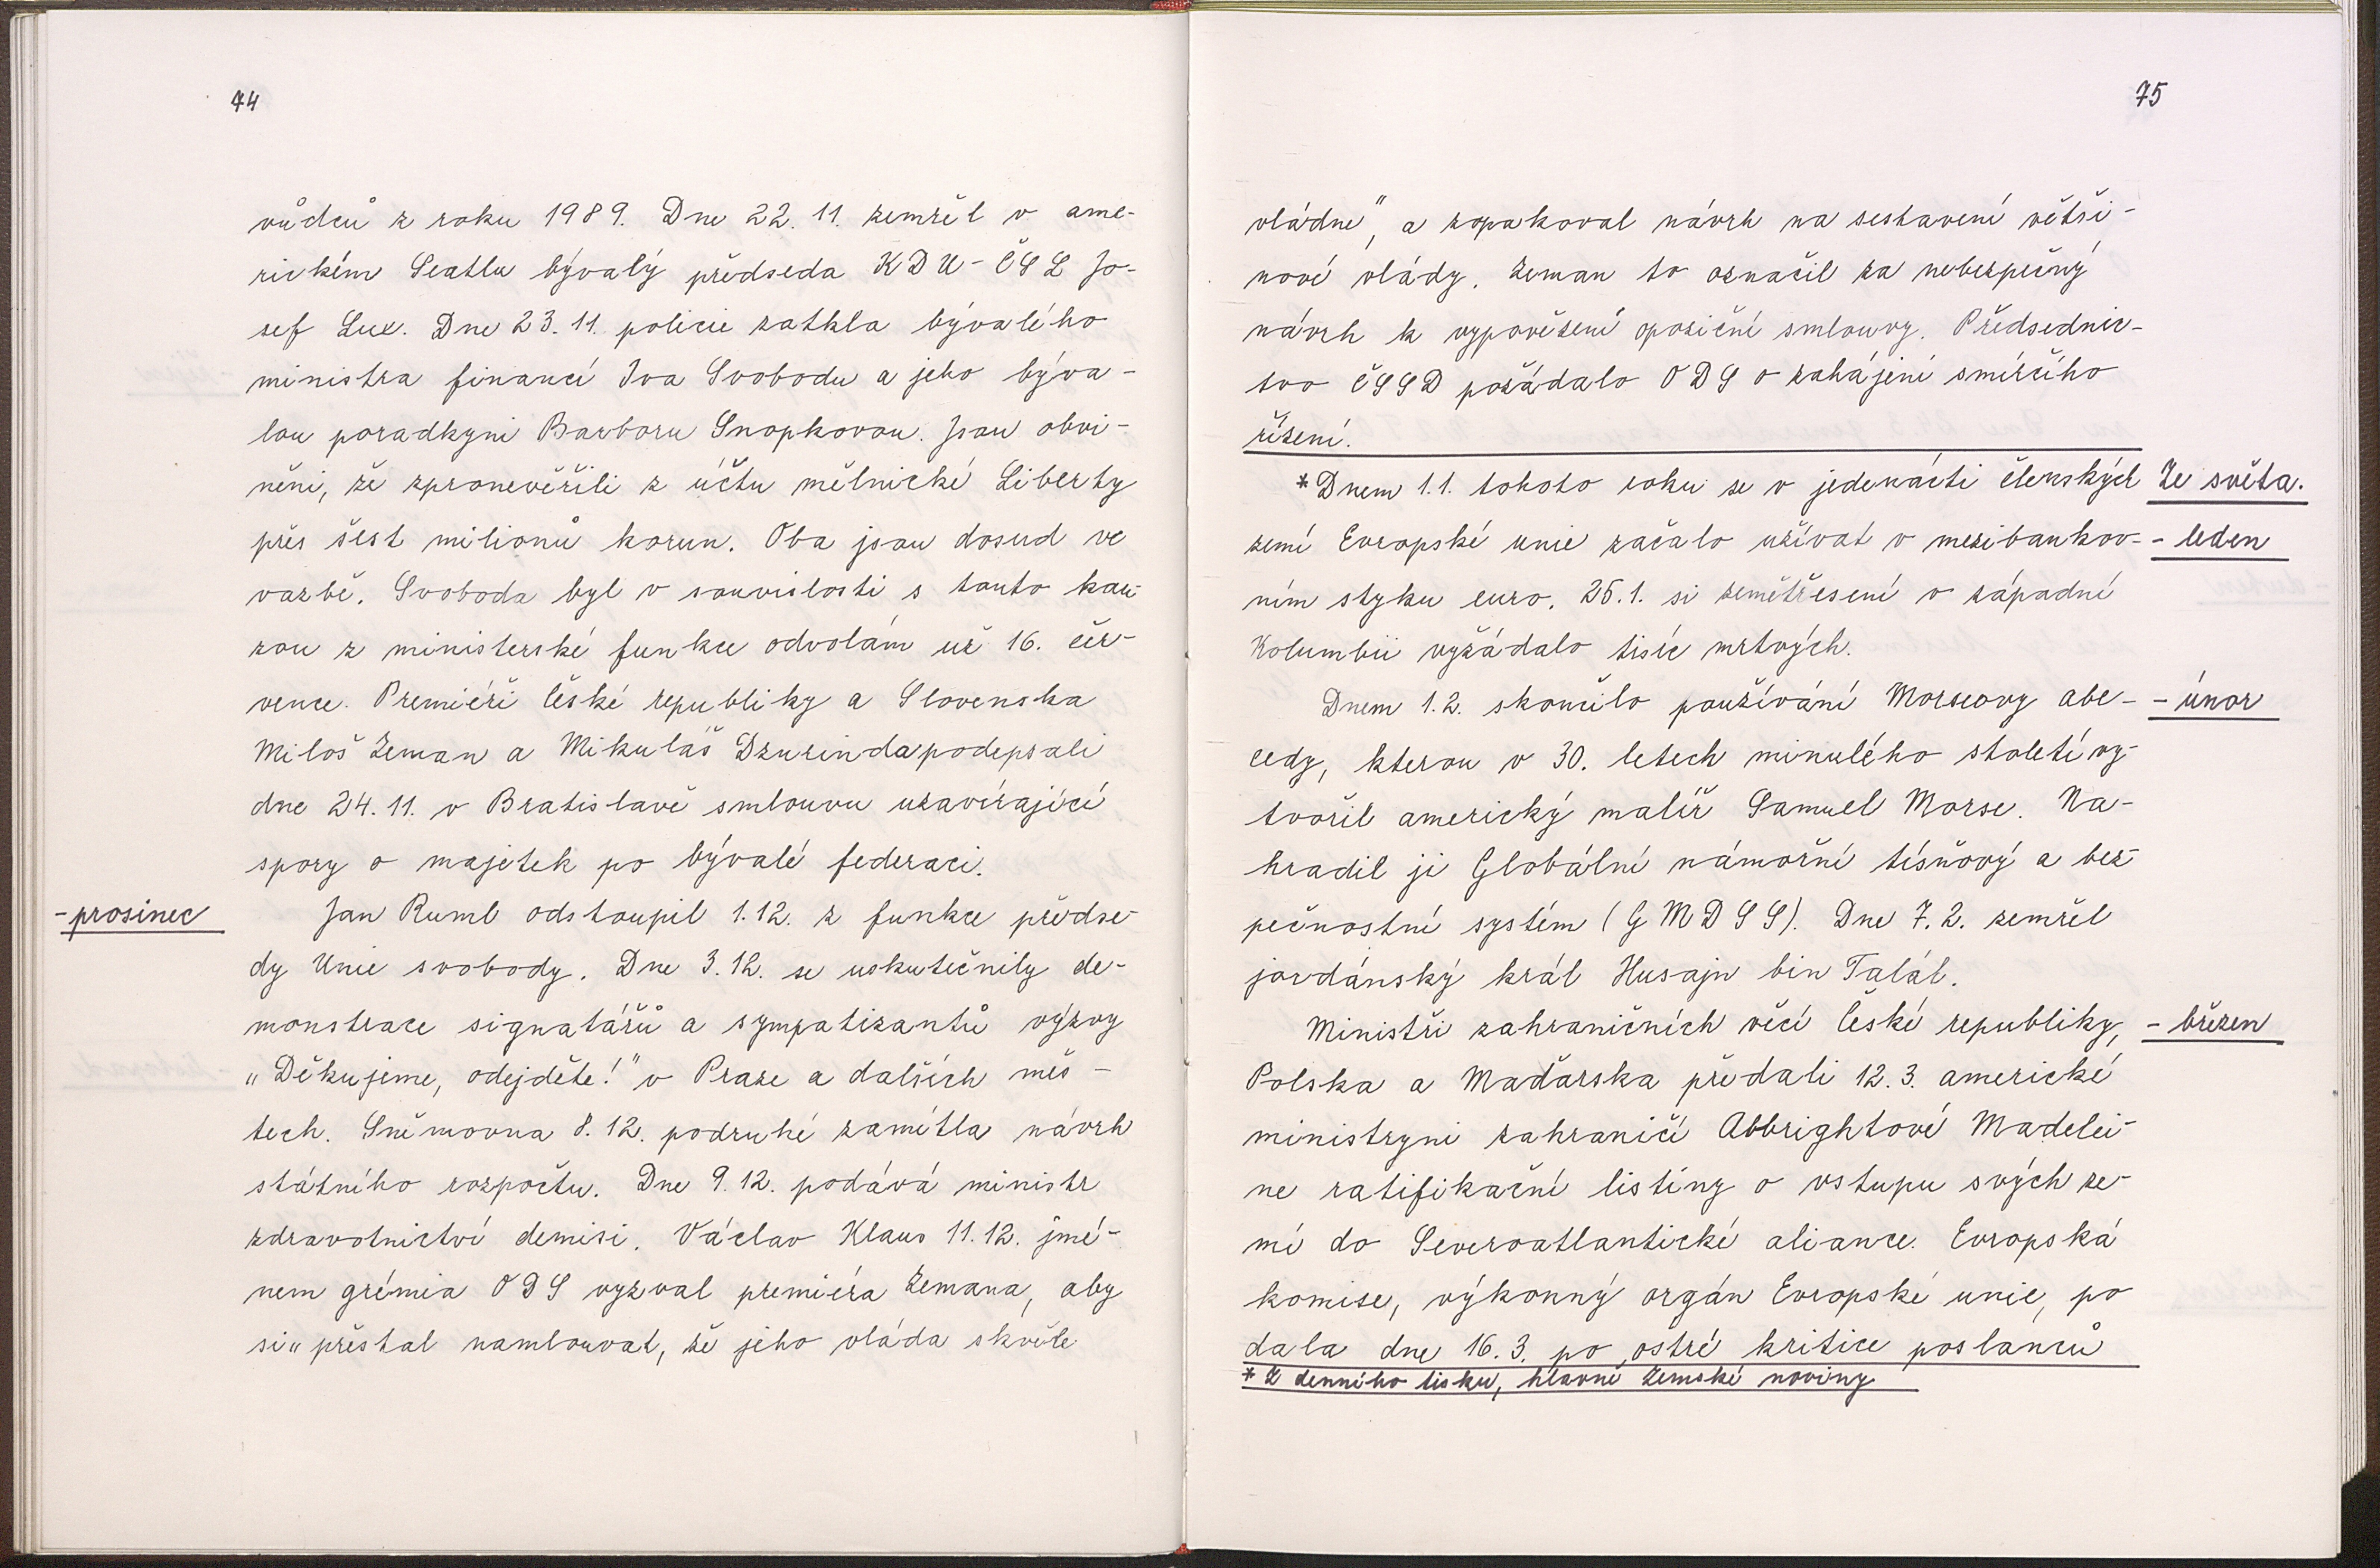 74
vůdců z roku 1989. Dne 22. 11. zemřel v ame-
rickém Seatlu bývalý předseda KDU-ČSL Jo-
sef Lux. Dne 23. 11. policie zatkla bývalého
ministra financí Iva Svobodu a jeho býva-
lou poradkyni Barboru Snopkovou. Jsou obvi-
něni, že zpronevěřili z účtu mělnické Liberty
přes šest milionů korun. Oba jsou dosud ve
vazbě. Svoboda byl v souvislosti s touto kau-
zou z ministerské funkce odvolám už 16. čer-
vence. Premiéři České republiky a Slovenska
Miloš Zeman a Mikuláš Dzurinda podepsali
dne 24. 11. v Bratislavě smlouvu uzavírající
spory o majetek po bývalé federaci.
- prosinec
Jan Ruml odstoupil 1. 12. z funkce předse-
dy Unie svobody. Dne 3. 12. se uskutečnily de-
monstrace signatářů a sympatizantů výzvy
„Děkujeme, odejděte!" v Praze a dalších měs-
tech. Sněmovna 8. 12. podruhé zamítla návrh
státního rozpočtu. Dne 9. 12. podává ministr
zdravotnictví demisi. Václav Klaus 11. 12. jmé-
nem grémia ODS vyzval premiéra Zemana, aby
si „přestal namlouvat, že jeho vláda skvěle
75
vládne", a zopakoval návrh na sestavení větši-
nové vlády. Zeman to označil za nebezpečný
návrh k vypovězení opoziční smlouvy. Předsednic-
tvo ČSSD požádalo ODS o zahájení smírčího
řízení.
*Dnem 1. 1. tohoto roku se v jedenácti členských
Ze světa.
zemí Evropské unie začalo užívat v mezibankov-
- leden
ním styku euro. 25. 1. si zemětřesení v západní
Kolumbii vyžádalo tisíc mrtvých.
Dnem 1. 2. skončilo používání Morseovy abe-
- únor
cedy, kterou v 30. letech minulého století vy-
tvořil americký malíř Samuel Morse. Na-
hradil ji Globální námořní tísňový a bez-
pečnostní systém (GMDSS). Dne 7. 2. zemřel
jordánský král Husajn bin Talál.
Ministři zahraničních věcí České republiky,
- březen
Polska a Maďarska předali 12. 3. americké
ministryni zahraničí Abbrightové Madelei-
ne ratifikační listiny o vstupu svých ze-
mí do Severoatlantické aliance. Evropská
komise, výkonný orgán Evropské unie, po
dala dne 16. 3. po ostré kritice poslanců
* Z denního tisku, hlavně Zemské noviny